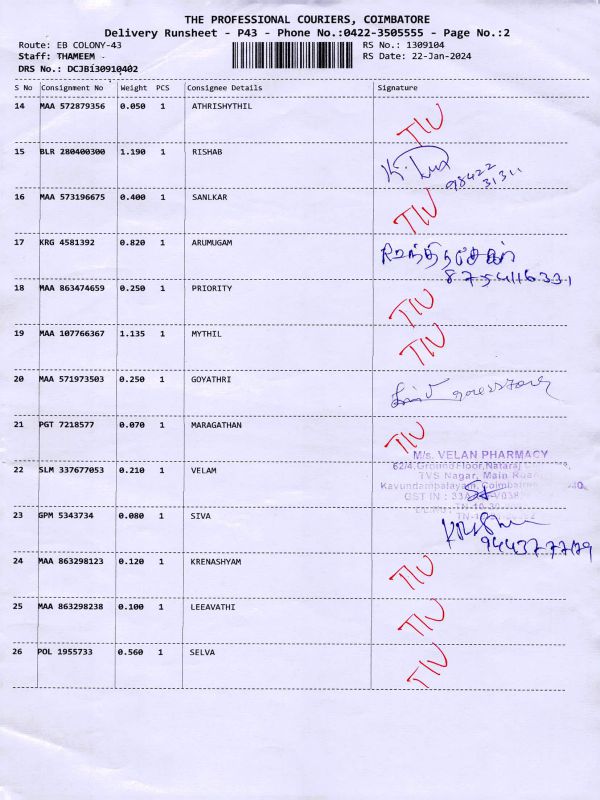 THE PROFESSIONAL COURIERS, COIMBATORE
Delivery Runsheet - P43 - Phone No.:0422-3505555 - Page No.:2
Route: EB COLONY-43 RS No.: 1309104
Staff: THAMEEM . RS Date: 22-Jan-2024
DRS No.: DCJBi30910402
S No Consignment No Weight PCS Consignee Details Signature
14 MAA 572879356 0.050 1 ATHRISHYTHIL
TIV
15 BLR 280400300 1.190 1 RISHAB
98422
31311
16 MAA 573196675 0.400 1 SANLKAR
TIV
17 KRG 4581392 0.820 1 ARUMUGAM
8754116331
18 MAA 863474659 0.250 1 PRIORITY
TIV
19 MAA 107766367 1.135 1 MYTHIL
TIV
20 MAA 571973503 0.250 1 GOYATHRI
21 PGT 7218577 0.070 1 MARAGATHAN
TIV
M/s. VELAN PHARMACY
22 SLM 337677053 0.210 1 VELAM
62/4, Ground Floor, Nataraj
TVS Nagar, Main Road
Kavundampalayam, Coimbatore
GST IN :
23 GPM 5343734 0.080 1 SIVA
24 MAA 863298123 0.120 1 KRENASHYAM
TIV
25 MAA 863298238 0.100 1 LEEAVATHI
TIV
26 POL 1955733 0.560 1 SELVA
TIV